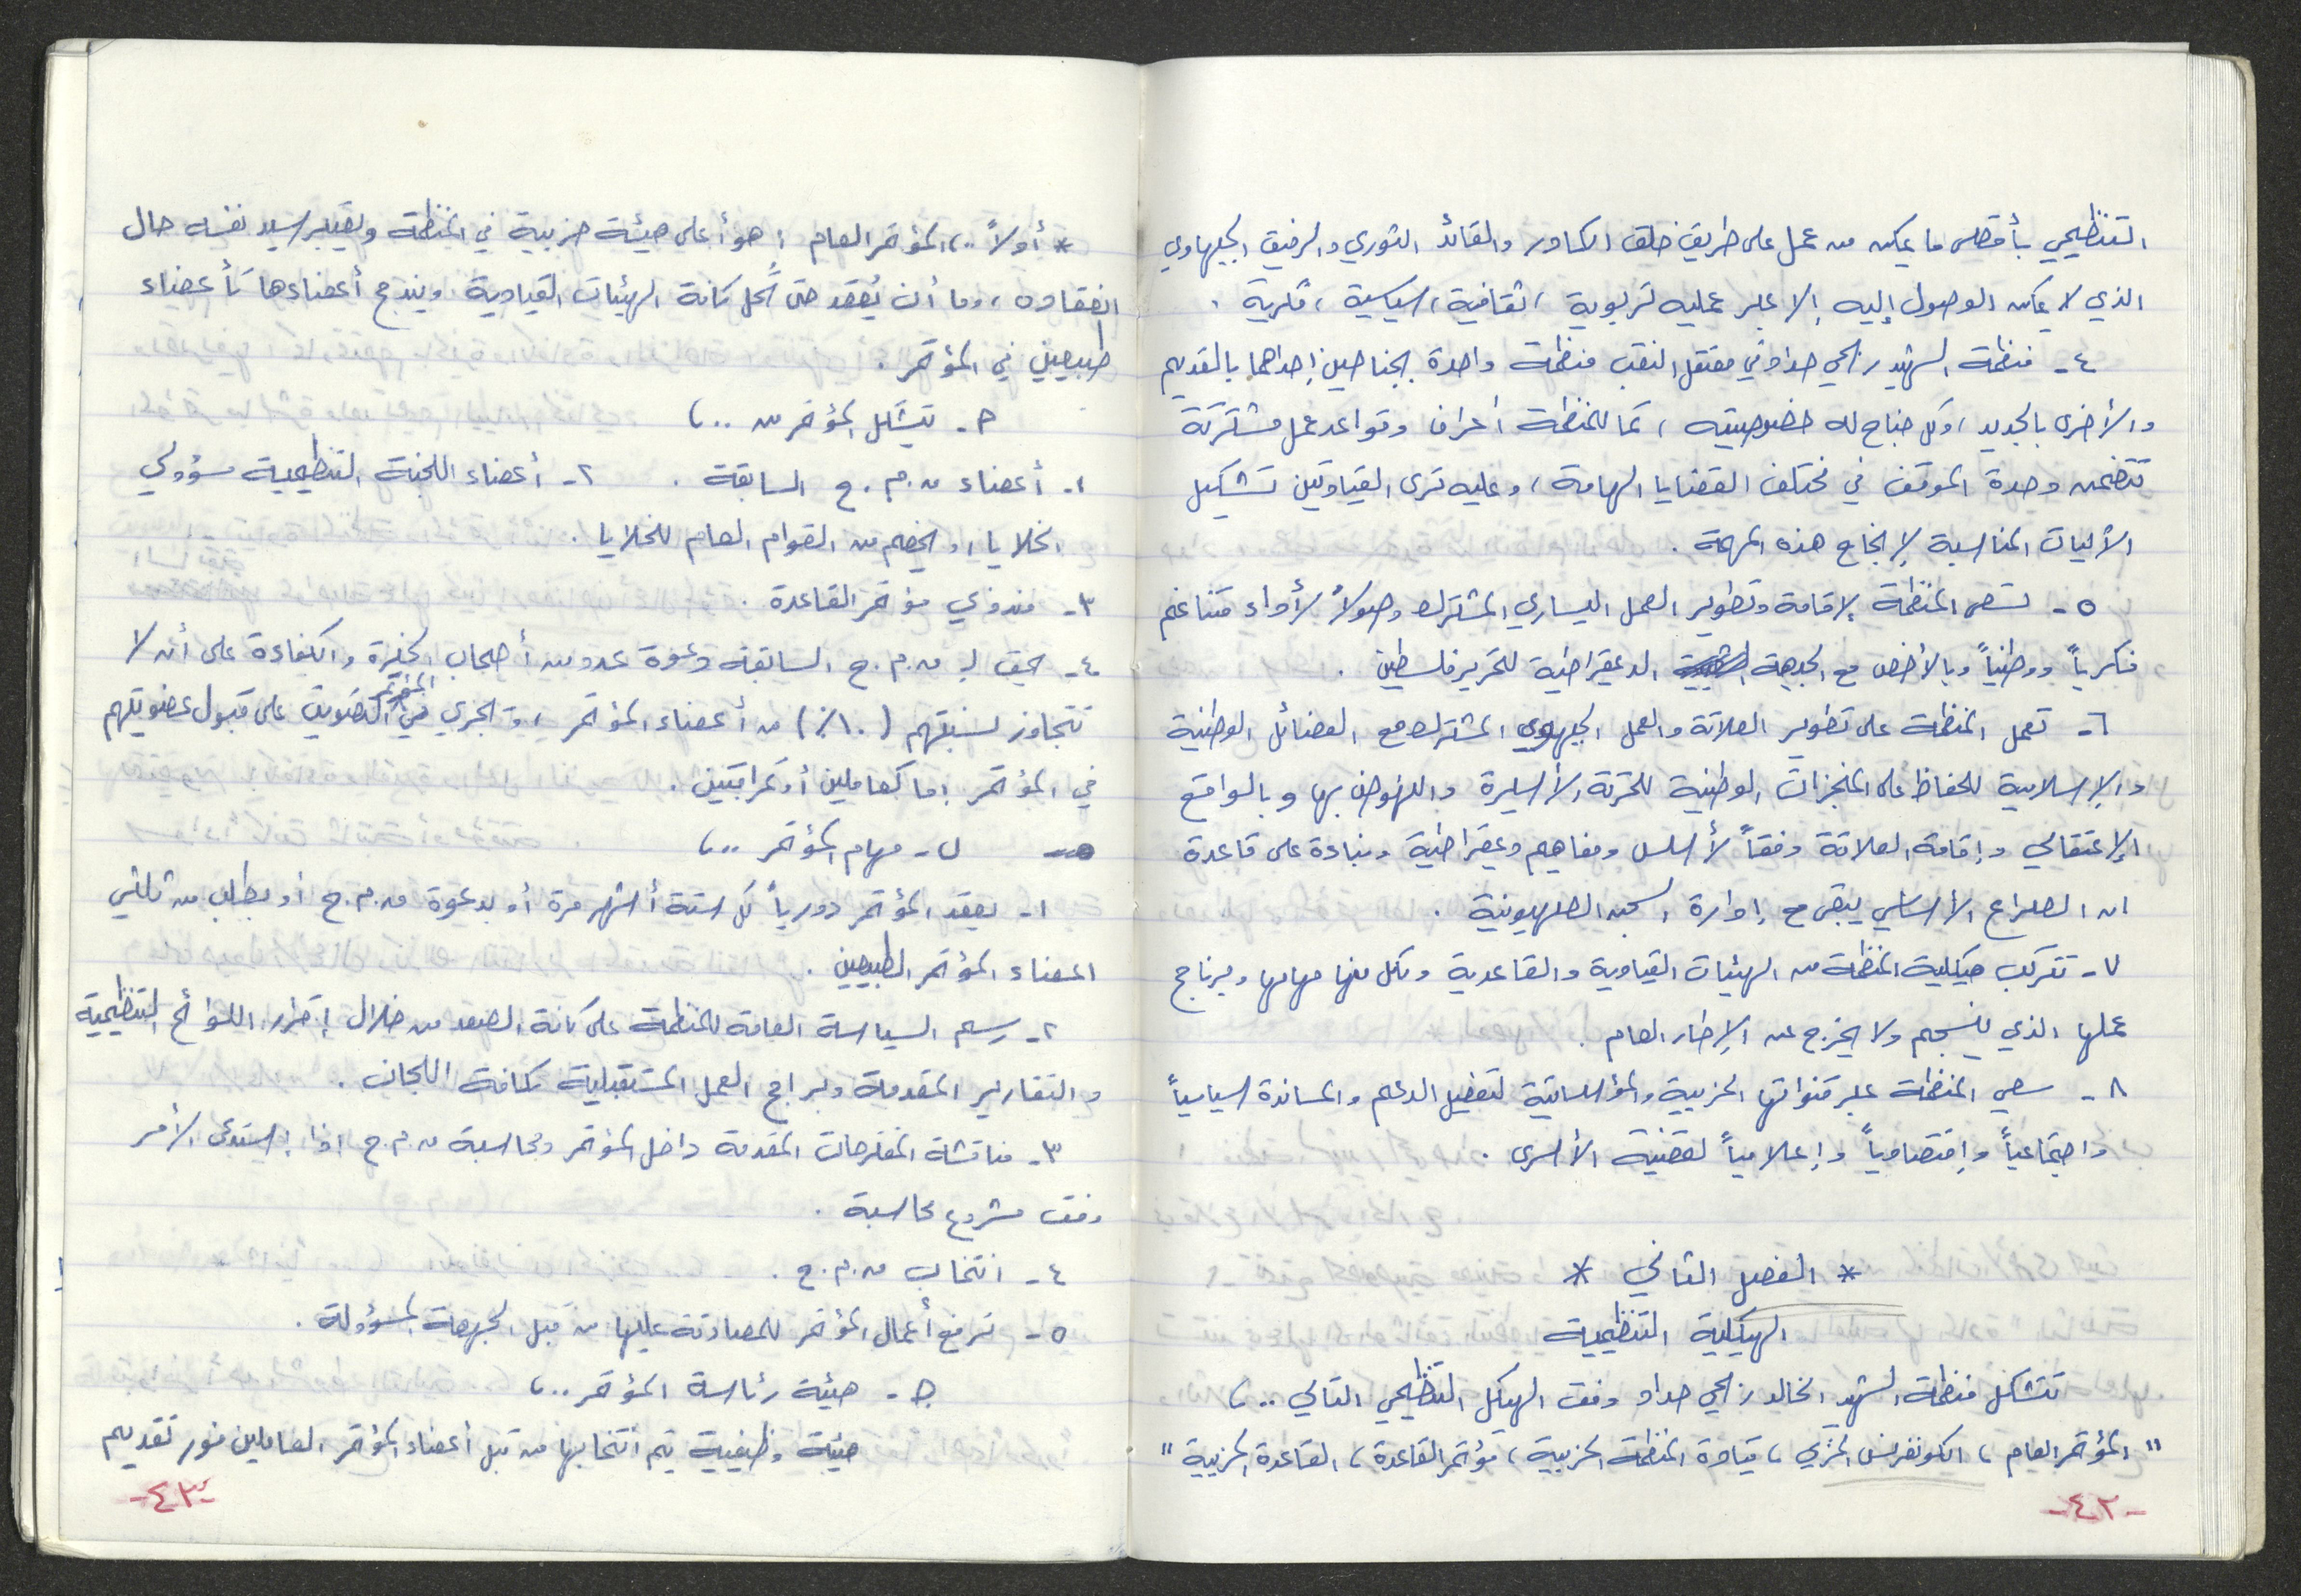 التنظيمي بأقصى ما يمكن من عمل على طريق خلق الكادر والقائد الثوري والرفيق الجبهاوي
الذي لا يمكن الوصول إليه إلا عبر عمليه تربوية ، ثقافية ، سياسية ، فكرية .
٤ - منظمة الشهيد ربحي حداد في معتقل النقب منظمة واحدة بجناحين إحداهما بالقديم
والأخرى بالجديد ، وكل جناح له خصوصيته ، كما للمنظمة أعراف وقواعد عمل مشتركة
تتضمن وحدة الموقف في مختلف القضايا الهامة ، وعليه ترى القيادتين تشكيل
الأليات المناسبة لإنجاح هذه المهمة .
٥ - تسعى المنظمة لإقامة وتطوير العمل اليساري المشترك وصولاً لأداء متناغم
فكرياً ووطنياً وبالأخص مع الجبهة الديمقراطية لتحرير فلسطين .
٦ - تعمل المنظمة على تطوير العلاقة والعمل الجبهوي المشترك مع الفصائل الوطنية
والإسلامية للحفاظ على المنجزات الوطنية للحركة الأسيرة والنهوض بها وبالواقع
الإعتقالي وإقامة العلاقة وفقاً لأسس ومفاهيم ديمقراطية وبناءة على قاعدة
ان الصراع الأساسي يبقى مع إدارة السجن الصهيونية .
٧ - تتركب هيكلية المنظمة من الهيئات القيادية والقاعدية ولكل منها مهامها وبرنامج
عملها الذي ينسجم ولا يخرج عن الإطار العام .
٨ - سعي المنظمة عبر قنواتها الحزبية والمؤسساتية لتفضيل الدعم والمساندة سياسياً
واجتماعياً وإقتصادياً وإعلامياً لقضية الأسرى .
* الفصل الثاني *
الهيكلية التنظيمية
تتشكل منظمة الشهيد الخالد ربحي حداد وفق الهيكل التنظيمي التالي ..،
" المؤتمر العام ، الكونفرنس الحزبي ، قيادة المنظمة الحزبية ، مؤتمر القاعدة ، القاعدة الحزبية "
-٤٢-
* أولاً ..، المؤتمر العام : هو أعلى هيئة حزبية في المنظمة ويعتبر سيد نفسه حال
انعقاده ، وما أن يُعقد حتى تُحل كافة الهيئات القيادية ويندمج أعضاءها كأعضاء
طبيعيين في المؤتمر .
م - يتشكل المؤتمر من ..،
١ - أعضاء م.م.ح السابقة . ٢ - أعضاء اللجنة التنظيمية مسؤولي
الخلايا ، ونحضهم من القوام العام للخلايا .
٣ - مندوبي مؤتمر القاعدة .
السابقة
٤ - يحق لـ م.م.ح السابقة دعوة عدد من أصحاب الخبرة والكفاءة على أن لا
تتجاوز نسبتهم (١٠٪) من أعضاء المؤتمر ، ويجري في المؤتمر التصويت على قبول عضويتهم
في المؤتمر إما كعاملين أو كمراقبين .
ب - مهام المؤتمر ..،
١ - يعقد المؤتمر دورياً كل ستة أشهر مرة أو بدعوة م.م.ح أو بطلب من ثلثي
اعضاء المؤتمر الطبيعيين .
٢ - رسم السياسة العامة للمنظمة على كافة الصعد من خلال إقرار اللوائح التنظيمية
والتقارير المقدمة وبرامج العمل المستقبلية لكافة اللجان .
٣ - مناقشة المقترحات المقدمة داخل المؤتمر ومحاسبة م.م.ح اذا إستدعى الأمر
وفق مشروع محاسبة .
٤ - انتخاب م.م.ح .
٥ - ترفع أعمال المؤتمر للمصادقة عليها من قبل الجهة المسؤولة .
ج - هيئة رئاسة المؤتمر ..،
هيئة وظيفية يتم انتخابها من قبل أعضاء المؤتمر العاملين فور تقديم
-٤٣-